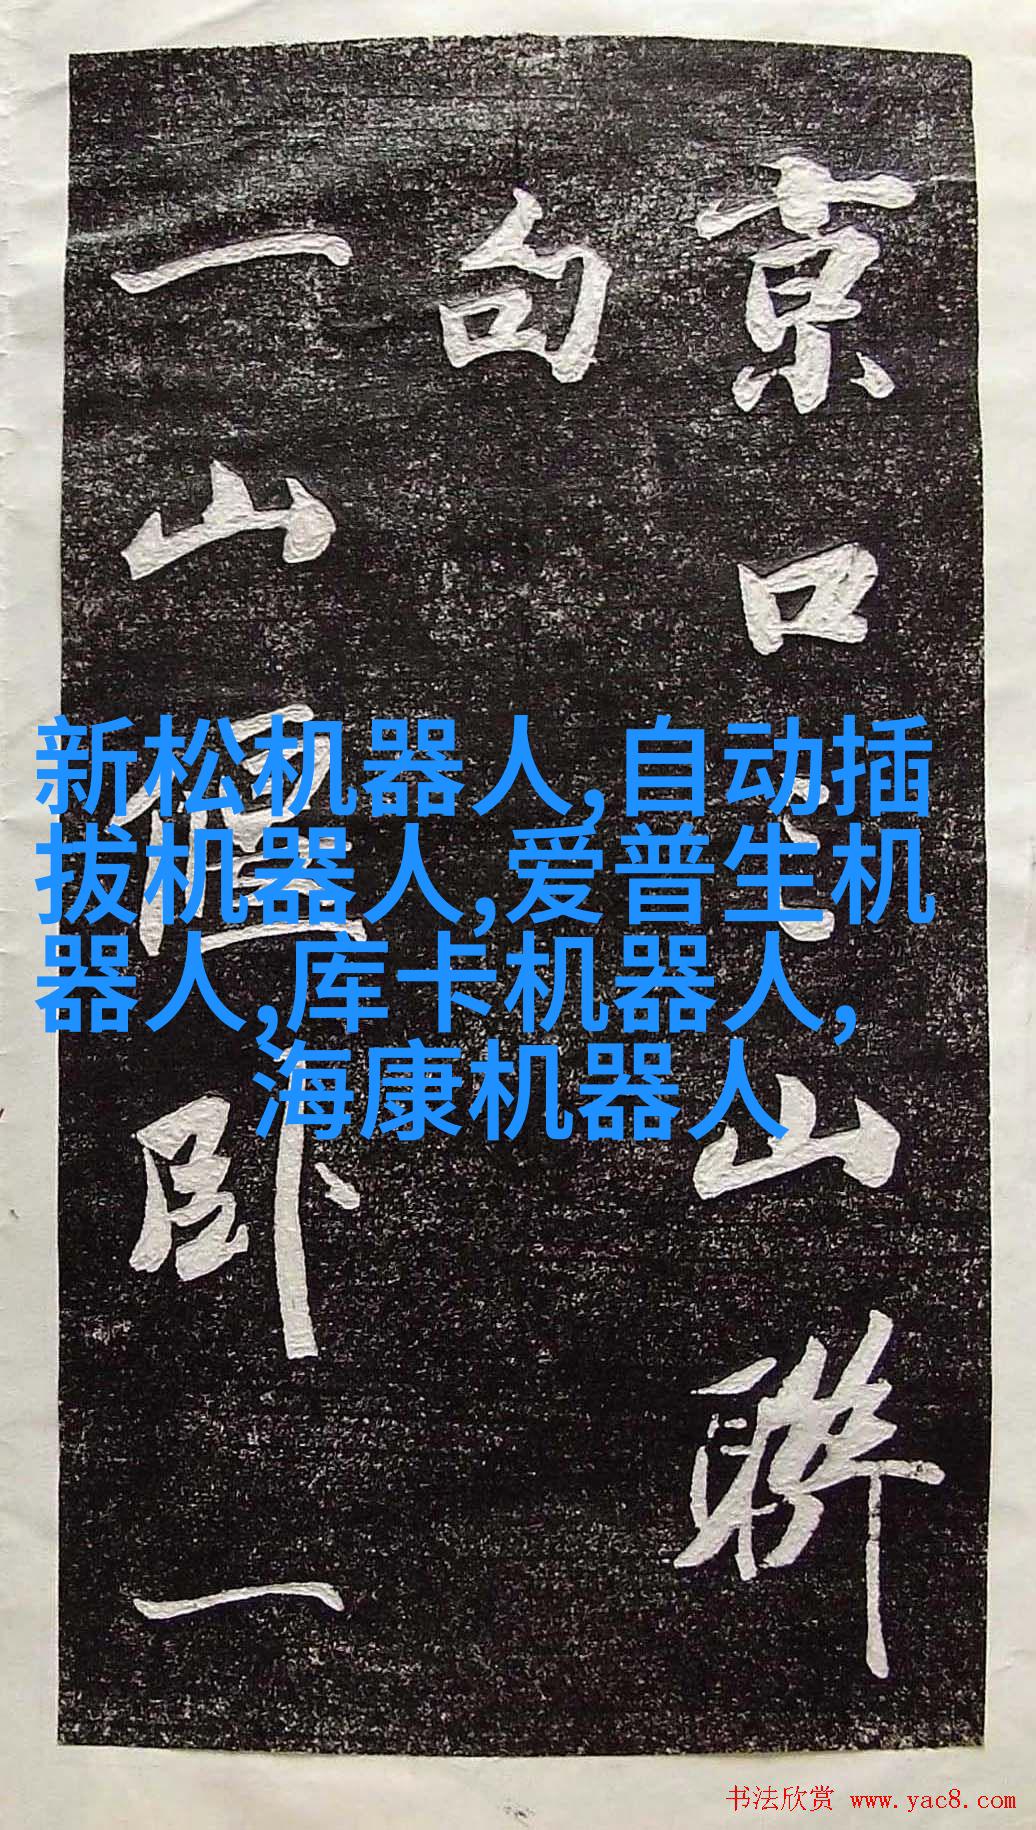 京口山聯
句
一山偃卧一
新松机器人,自动插
拔机器人,爱普生机
器人,库卡机器人,
海康机器人
书法欣赏 www.yac8.com